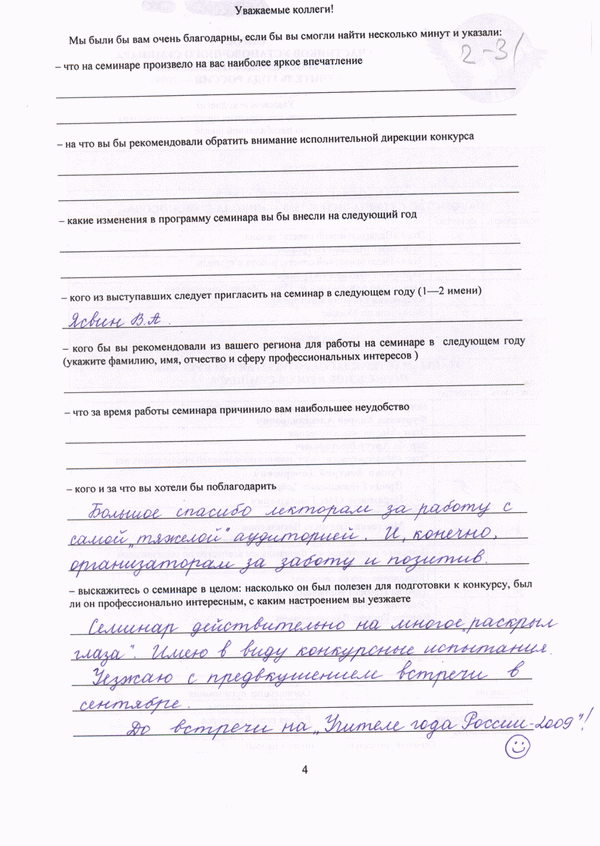 Уважаемые коллеги!
Мы были бы вам очень благодарны, если бы вы смогли найти несколько минут и указали:
2-3/
– что на семинаре произвело на вас наиболее яркое впечатление
– на что вы бы рекомендовали обратить внимание исполнительной дирекции конкурса
– какие изменения в программу семинара вы бы внесли на следующий год
– кого из выступавших следует пригласить на семинар в следующем году (1—2 имени)
Ясвин В.А.
– кого бы вы рекомендовали из вашего региона для работы на семинаре в следующем году
(укажите фамилию, имя, отчество и сферу профессиональных интересов )
– что за время работы семинара причинило вам наибольшее неудобство
– кого и за что вы хотели бы поблагодарить
Большое спасибо лекторам за работу с
самой „тяжелой" аудиторией. И, конечно,
организаторам за заботу и позитив.
– выскажитесь о семинаре в целом: насколько он был полезен для подготовки к конкурсу, был
ли он профессионально интересным, с каким настроением вы уезжаете
Семинар действительно на многое „раскрыл
глаза". Имею в виду конкурсные испытания.
Уезжаю с предвкушением встречи в
сентябре.
До встречи на „Учителе года России-2009"!
4